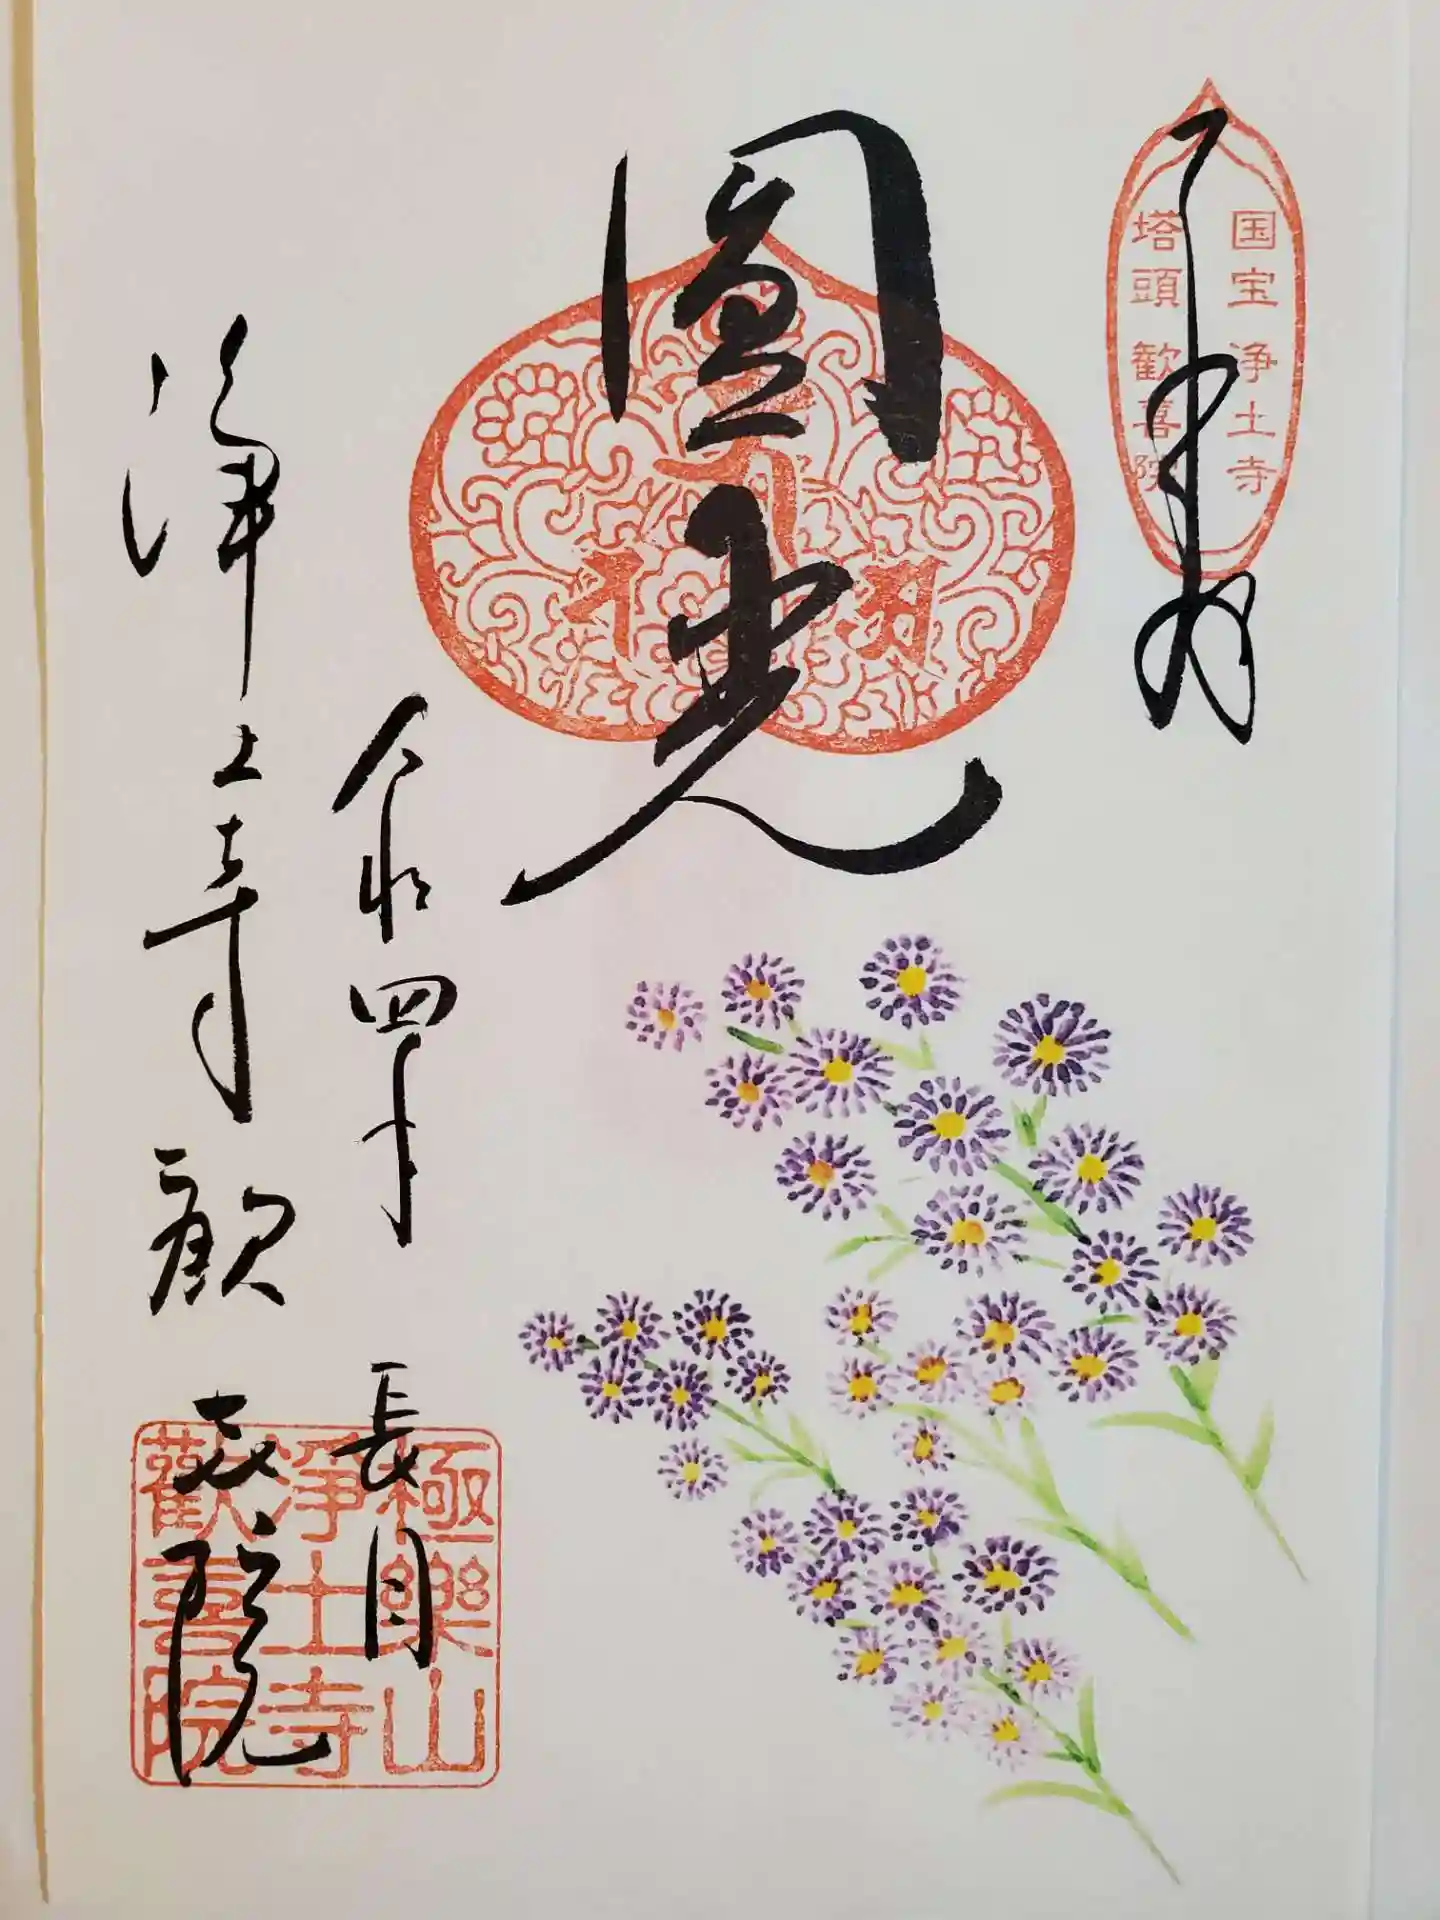 奉拝
国宝 浄土寺
塔頭 歓喜院
圓光
令和四年 長月
浄土寺 歓喜院
極樂山
浄土寺
歡喜院